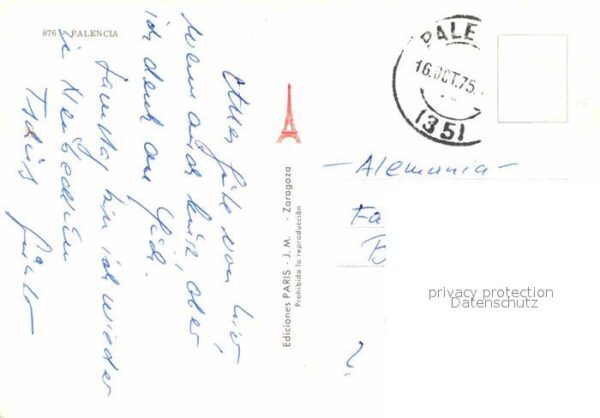 876 - PALENCIA
Alles Gute von hier,
wenn auch kurz, aber
ich denk an
Samstag bin ich wieder
in
Tschüß
Günter
Ediciones PARIS - J. M. - Zaragoza
Prohibida la reproducción
PALE
16.OCT.75
(35)
- Alemania -
Fa
B
privacy protection
Datenschutz
?